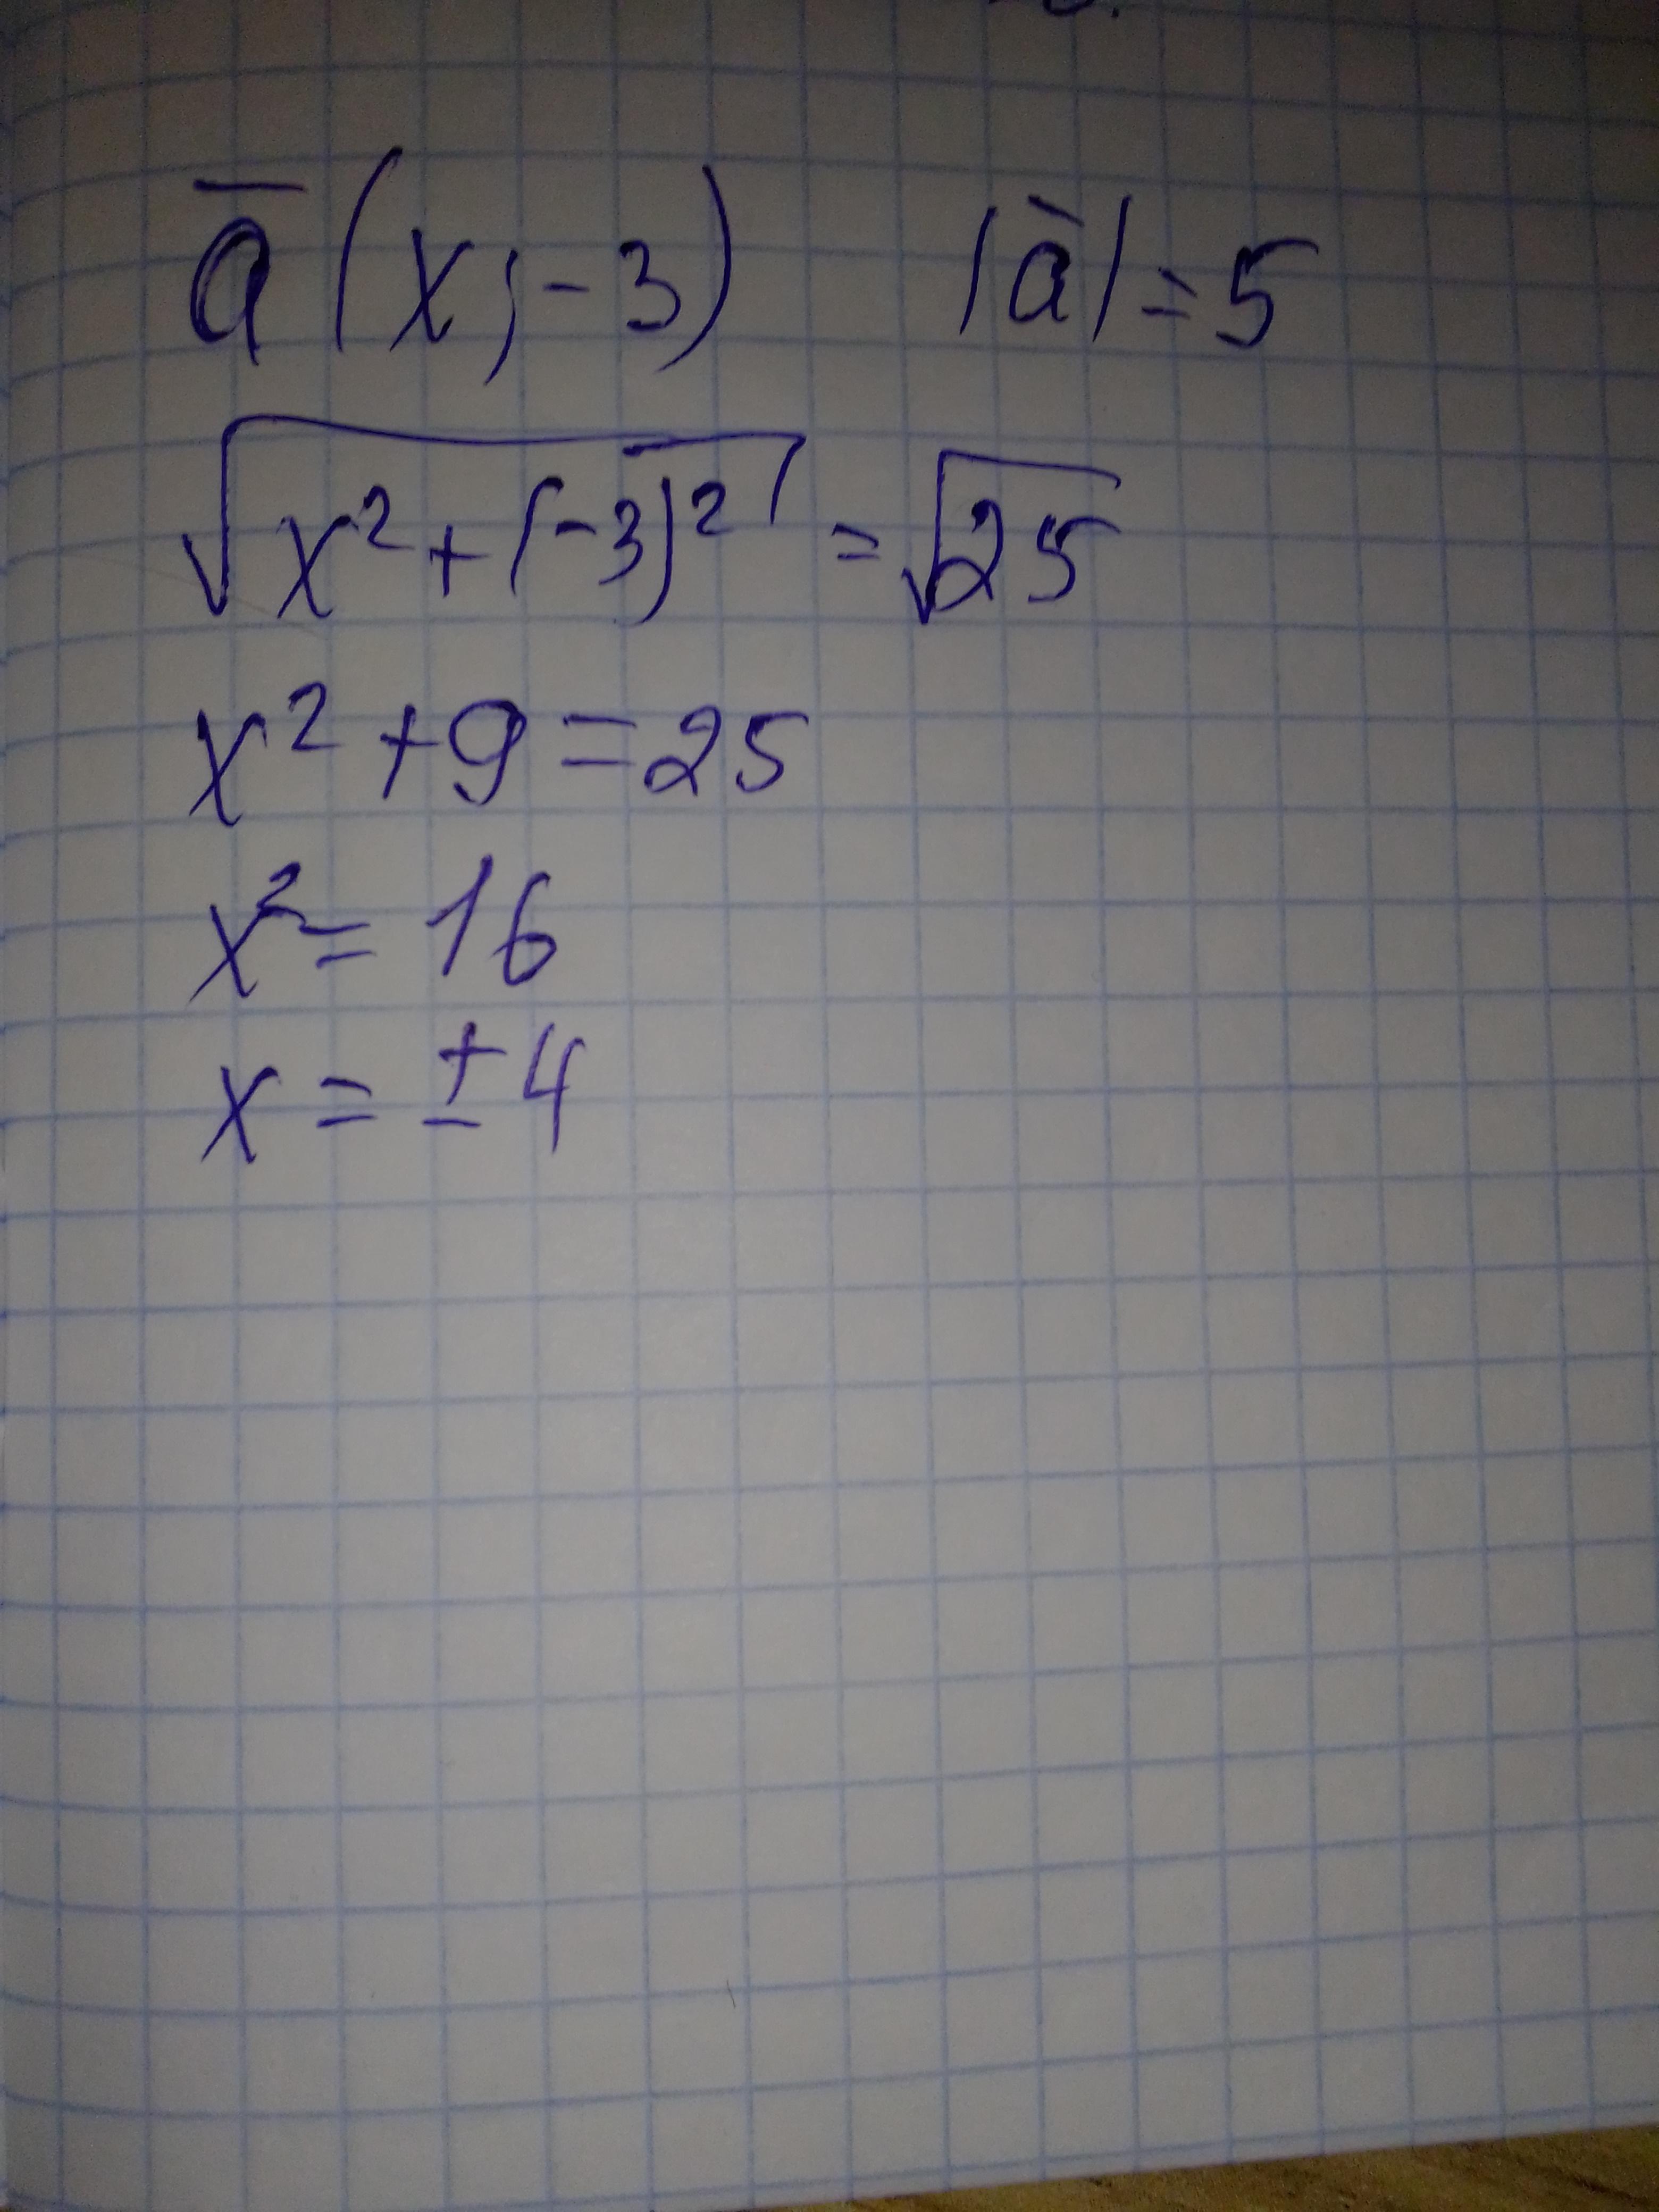 a̅ (x; -3) |a̅| = 5
√(x² + (-3)²) = √25
x² + 9 = 25
x² = 16
x = ± 4